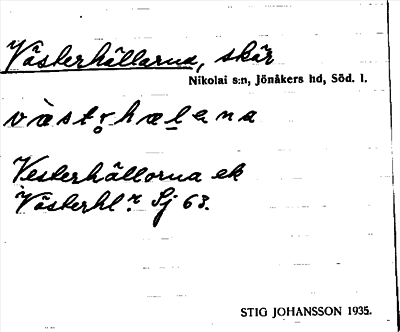 Västerhällarna, skär
Nikolai s:n, Jönåkers hd, Söd. l.
Vesterhällorna ek
Västerhl⁠r. Sj 63.
STIG JOHANSSON 1935.